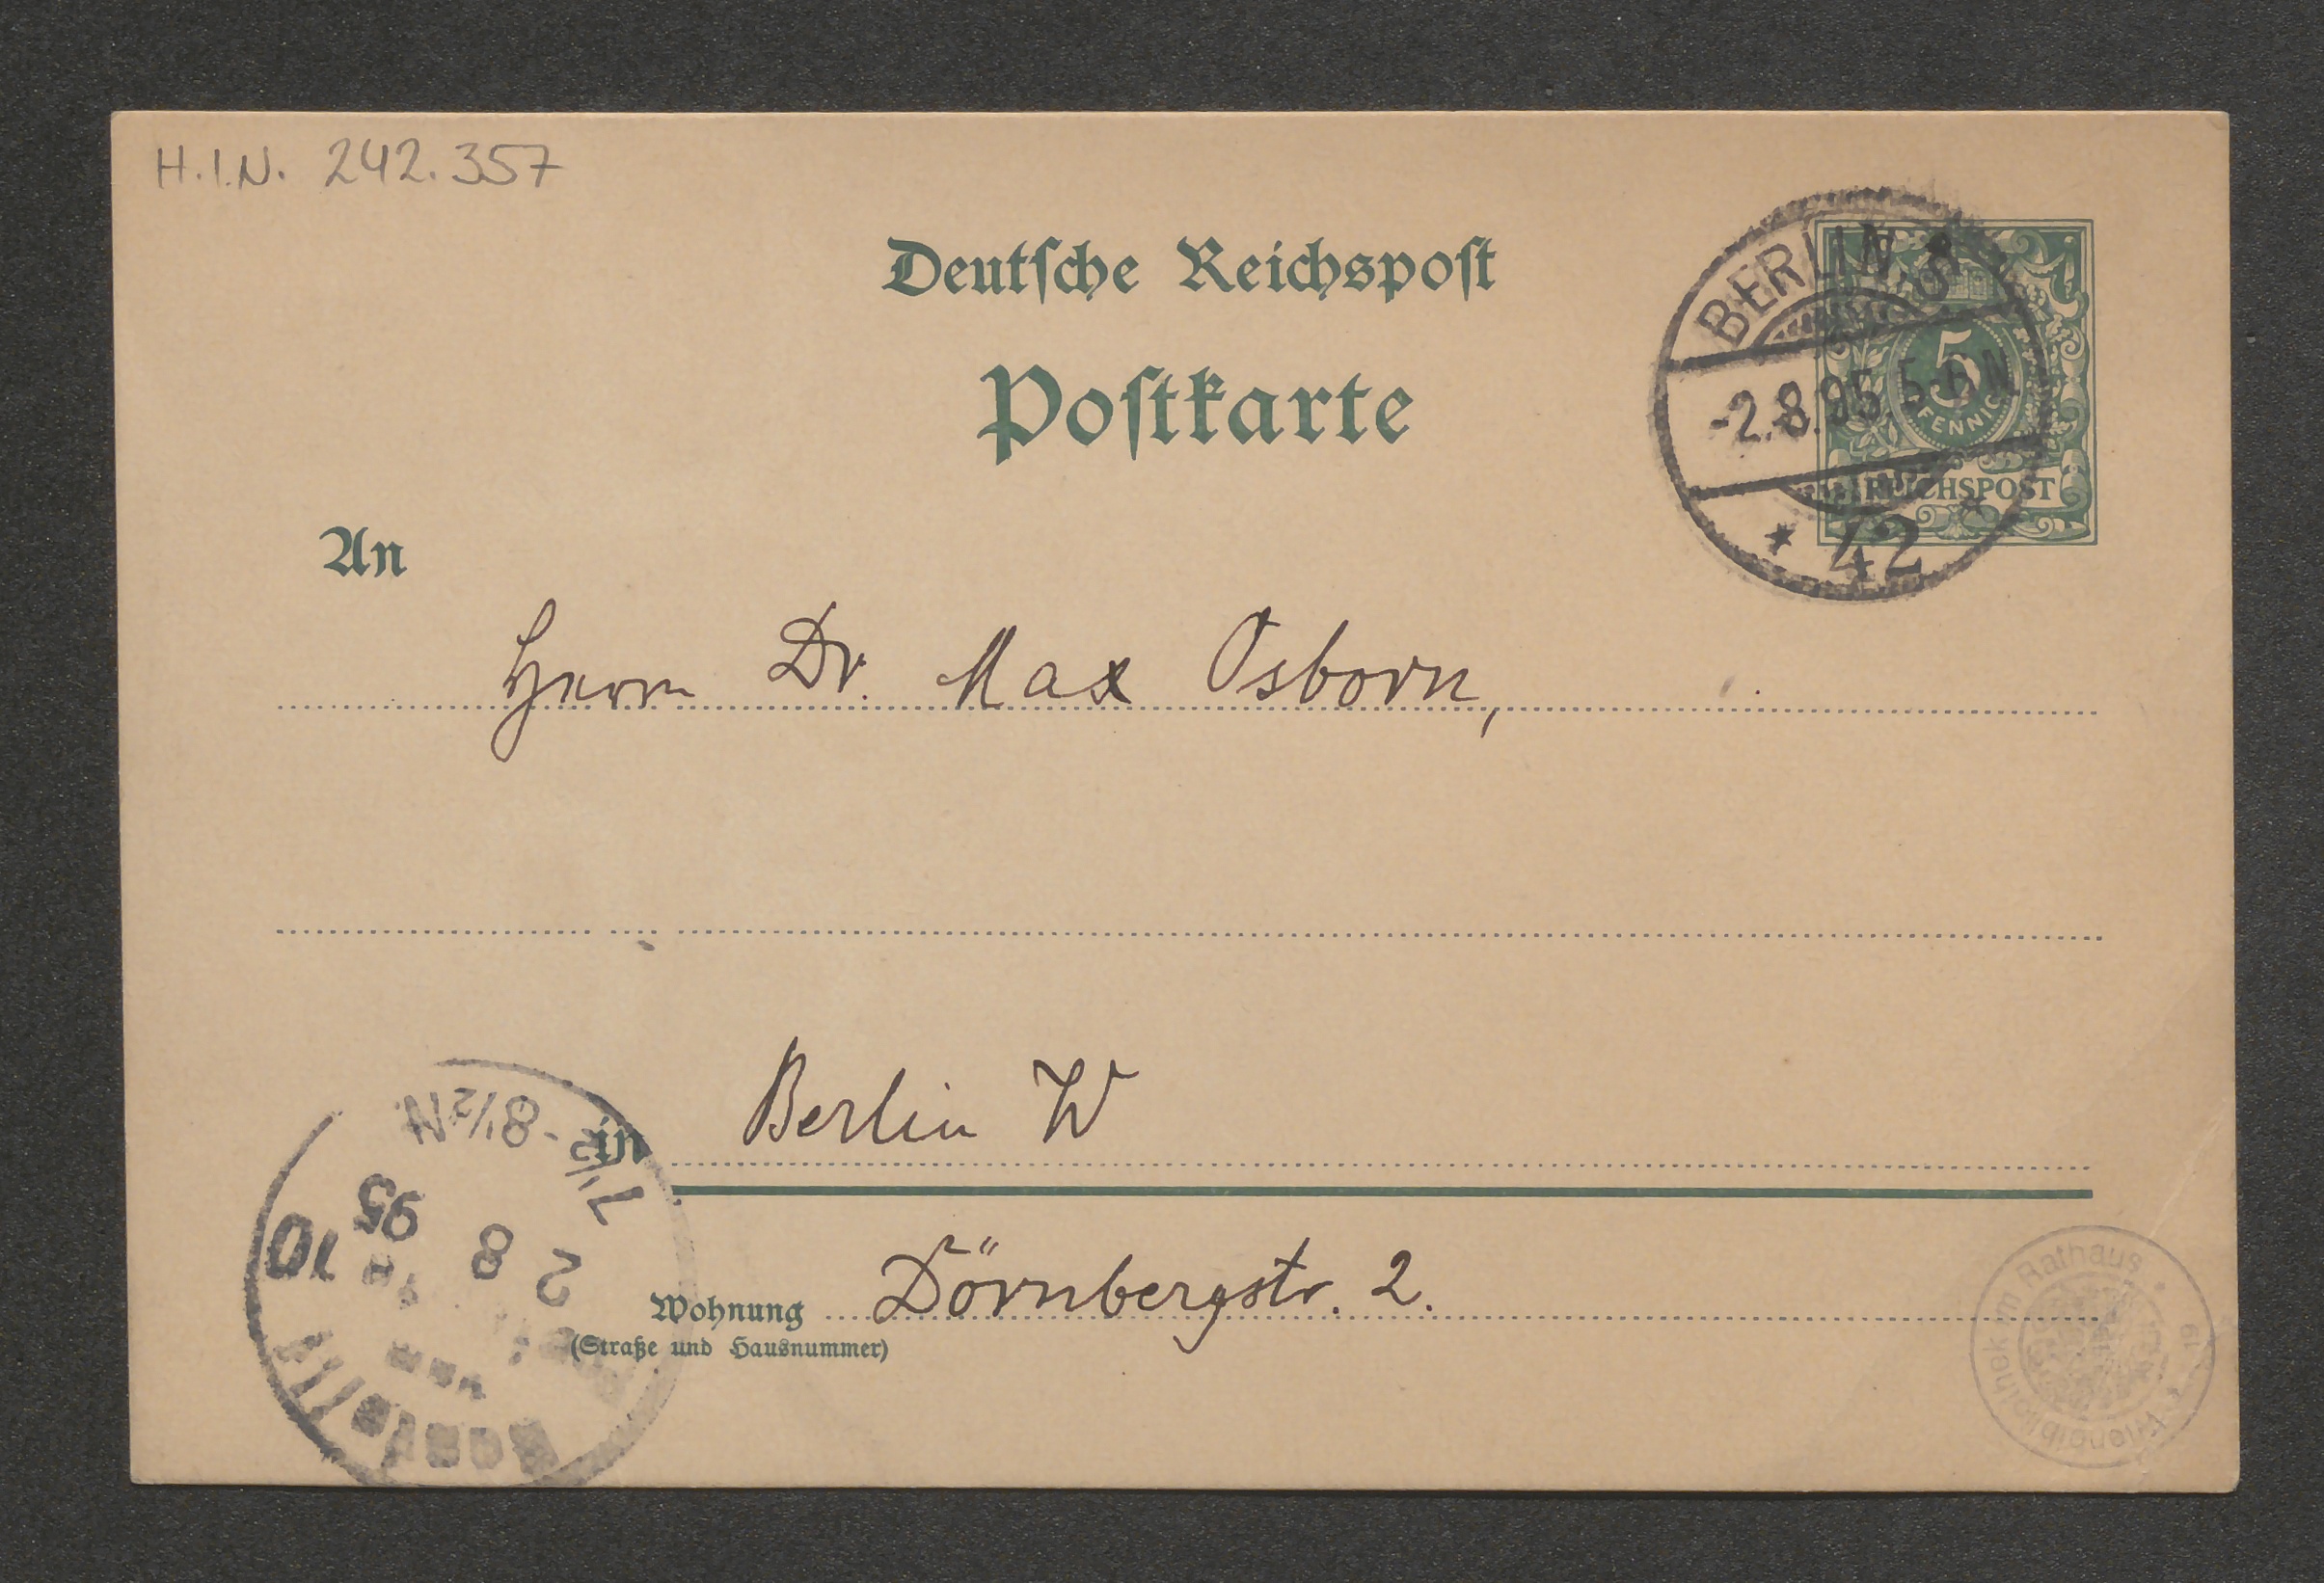 H.I.N. 242.357
Deutsche Reichspost
Postkarte
BERLIN, S
-2.8.95 5-6 N
* 42 *
5
PFENNIG
REICHSPOST
An
Herrn Dr. Max Osborn,
in Berlin W
Wohnung Dörnbergstr. 2.
(Straße und Hausnummer)
7½-8½N
2 8 95
10
im Rathaus